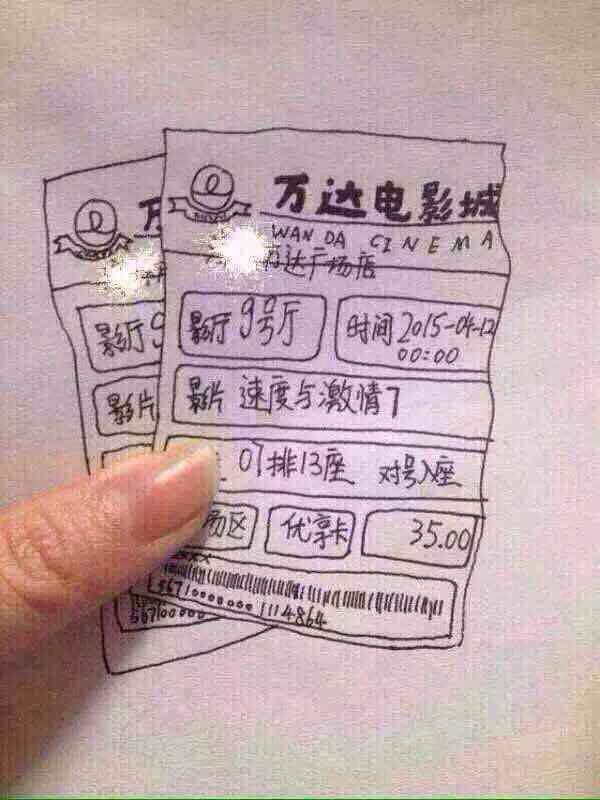 万达电影城
WANDA CINEMA
万达广场店
影厅 9号厅
时间 2015-04-12
00:00
影片 速度与激情7
07排13座 对号入座
场区 优享卡 35.00
5671000000 1114864
万
影厅 9
影片
56700000